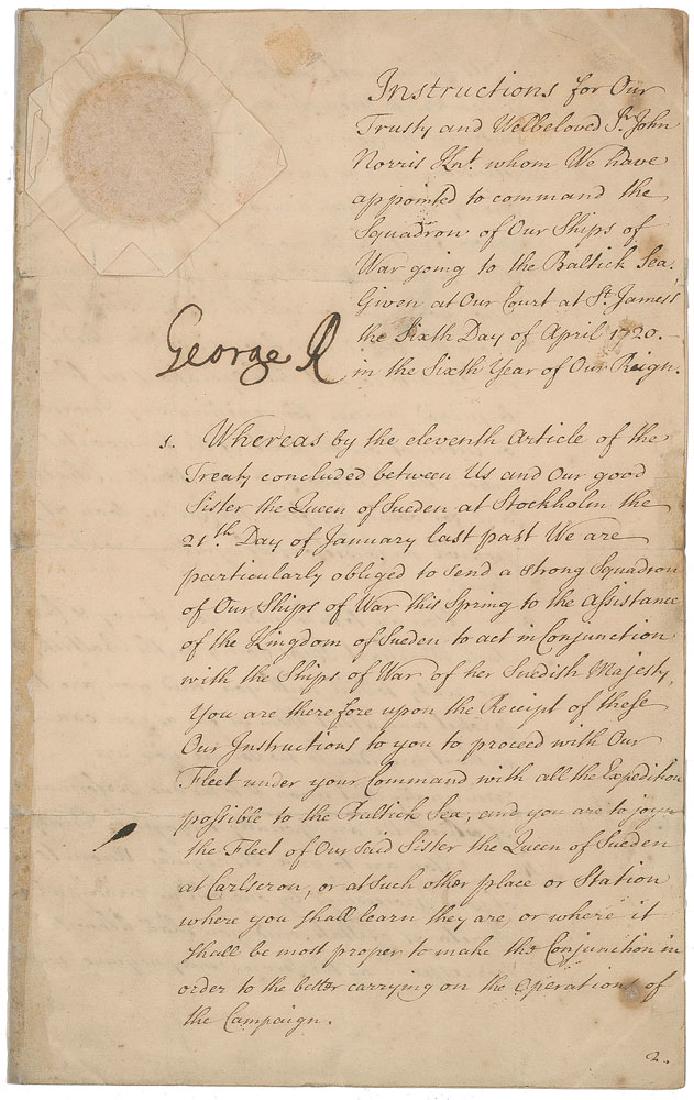 Instructions for Our
Trusty and Welbeloved Sr. John
Norris Knt. whom We have
appointed to command the
Squadron of Our Ships of
War going to the Baltick Sea.
Given at Our Court at St. James's
the Sixth Day of April 1720.-
George R
in the Sixth Year of Our Reign.
1. Whereas by the eleventh Article of the
Treaty concluded between Us and Our good
Sister the Queen of Sueden at Stockholm the
21th. Day of January last past We are
particularly obliged to send a strong Squadron
of Our Ships of War this Spring to the Assistance
of the Kingdom of Sueden to act in Conjunction
with the Ships of War of her Suedish Majesty,
You are therefore upon the Receipt of these
Our Instructions to you to proceed with Our
Fleet under your Command with all the Expedition
possible to the Baltick Sea, and you are to joyn
the Fleet of Our said Sister the Queen of Sueden
at Carlscron, or at such other place or Station
where you shall learn they are, or where it
shall be most proper to make the Conjunction in
order to the better carrying on the Operations of
the Campaign.
2.